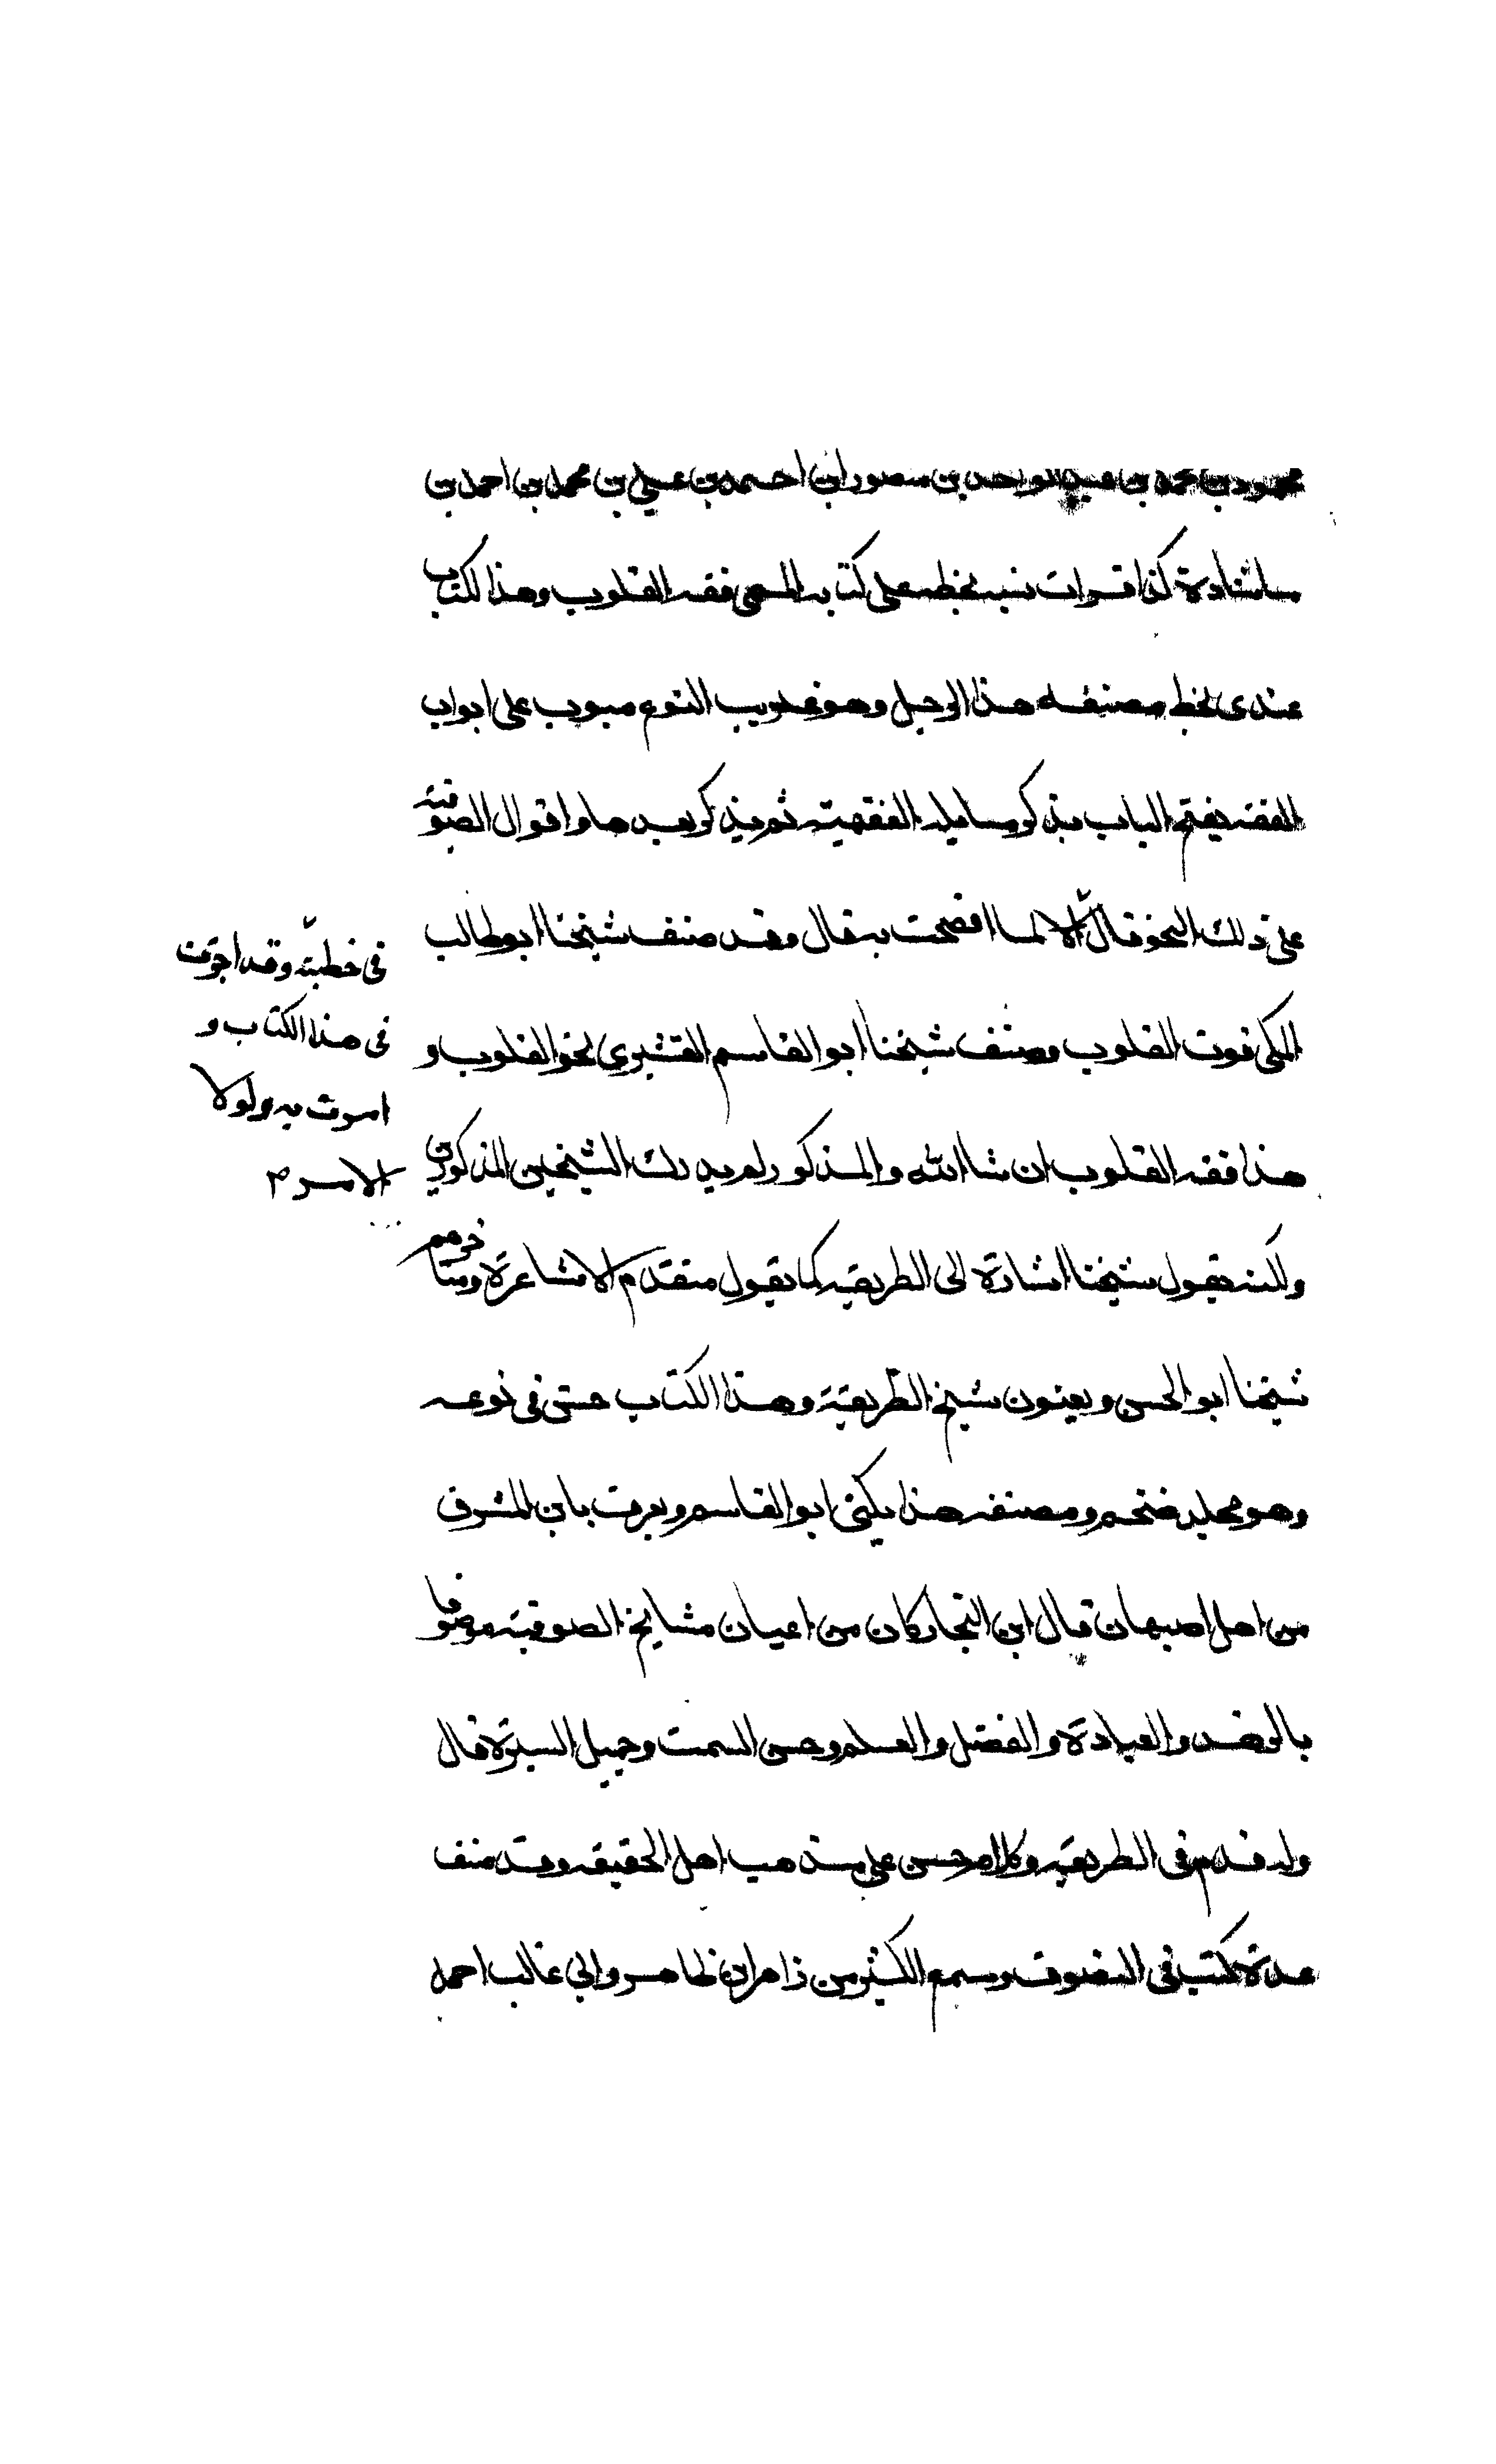 محمود بن محمد بن عبد الواحد بن منصور ابن احمد بن علي بن محمد بن احمد بن
ماشاذة كذا قرات نسبه بخطه على كتابه المسمى فقه القلوب وهذا الكتاب
عندى بخط مصنفه هذا الرجل وهو غريب النوع مبوب على ابواب
الفقه يفتح الباب بذكر مسايله الفقهية ثم يذكر بعدها واقوال الصوفية
على ذلك النحو قال الا لما افصحت به قال وقد صنف شيخنا ابو طالب
المكى قوت القلوب وصنف شيخنا ابو القاسم القشيرى نحو القلوب و
هذا فقه القلوب ان شا الله والمذكور لم يدرك الشيخين المذكورين
ولكنه يقول شيخنا اشارة الى الطريقه كما يقول متقدم الاشاعرة ومتاخرهم
شيخنا ابو الحسن ويعنون شيخ الطريقة وهذا الكتاب حسن فى نوعه
وهو مجلد ضخم ومصنفه هذا يكنى ابو القاسم ويعرف بابن المشرف
من اهل اصبهان قال ابن النجار كان من اعيان مشايخ الصوفية موصوفا
بالزهد والعبادة والفضل والعلم وحسن السمت وجميل السيرة قال
وله قدم فى الطريقه وكلام حسن على مذهب اهل الحقيقه وقد صنف
عدة كتب فى التصوف وسمع الكثير من زاهر ابن طاهر وابي غالب احمد
فى خطبته وقد اجرت
فى هذا الكتاب و
امرت به ولولا
الامر م